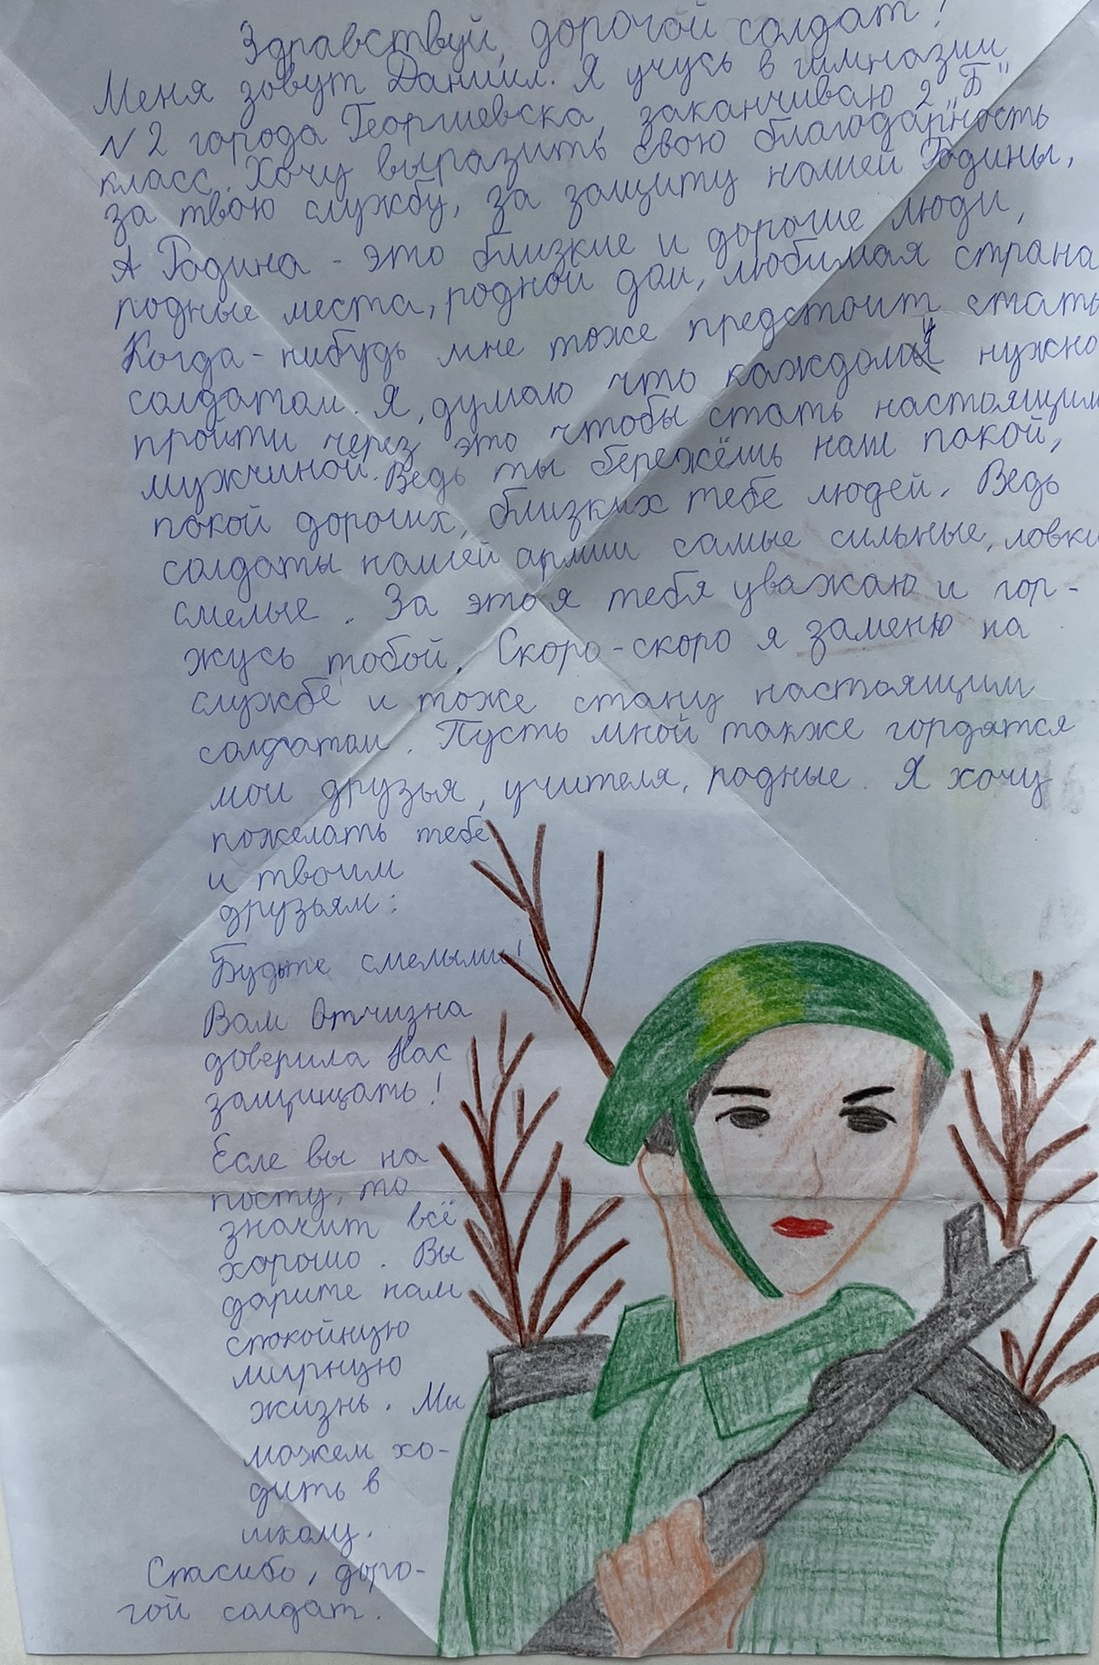 Здравствуй, дорогой солдат!
Меня зовут Даниил. Я учусь в гимназии
№2 города Георгиевска, заканчиваю 2 "Б"
класс. Хочу выразить свою благодарность
за твою службу, за защиту нашей Родины,
А Родина - это близкие и дорогие люди,
родные места, родной дом, любимая страна
Когда-нибудь мне тоже предстоит стать
солдатом. Я, думаю что каждому нужно
пройти через это чтобы стать настоящим
мужчиной. Ведь ты бережёшь наш покой,
покой дорогих, близких тебе людей. Ведь
солдаты нашей армии самые сильные, ловки
смелые. За это я тебя уважаю и гор-
жусь тобой. Скоро-скоро я заменю на
службе и тоже стану настоящим
солдатом. Пусть мной также гордятся
мои друзья, учителя, родные. Я хочу
пожелать тебе
и твоим
друзьям:
Будьте смелыми!
Вам Отчизна
доверила нас
защищать!
Есле вы на
посту, то
значит всё
хорошо. Вы
дарите нам
спокойную
мирную
жизнь. Мы
можем хо-
дить в
школу.
Спасибо, доро-
гой солдат.